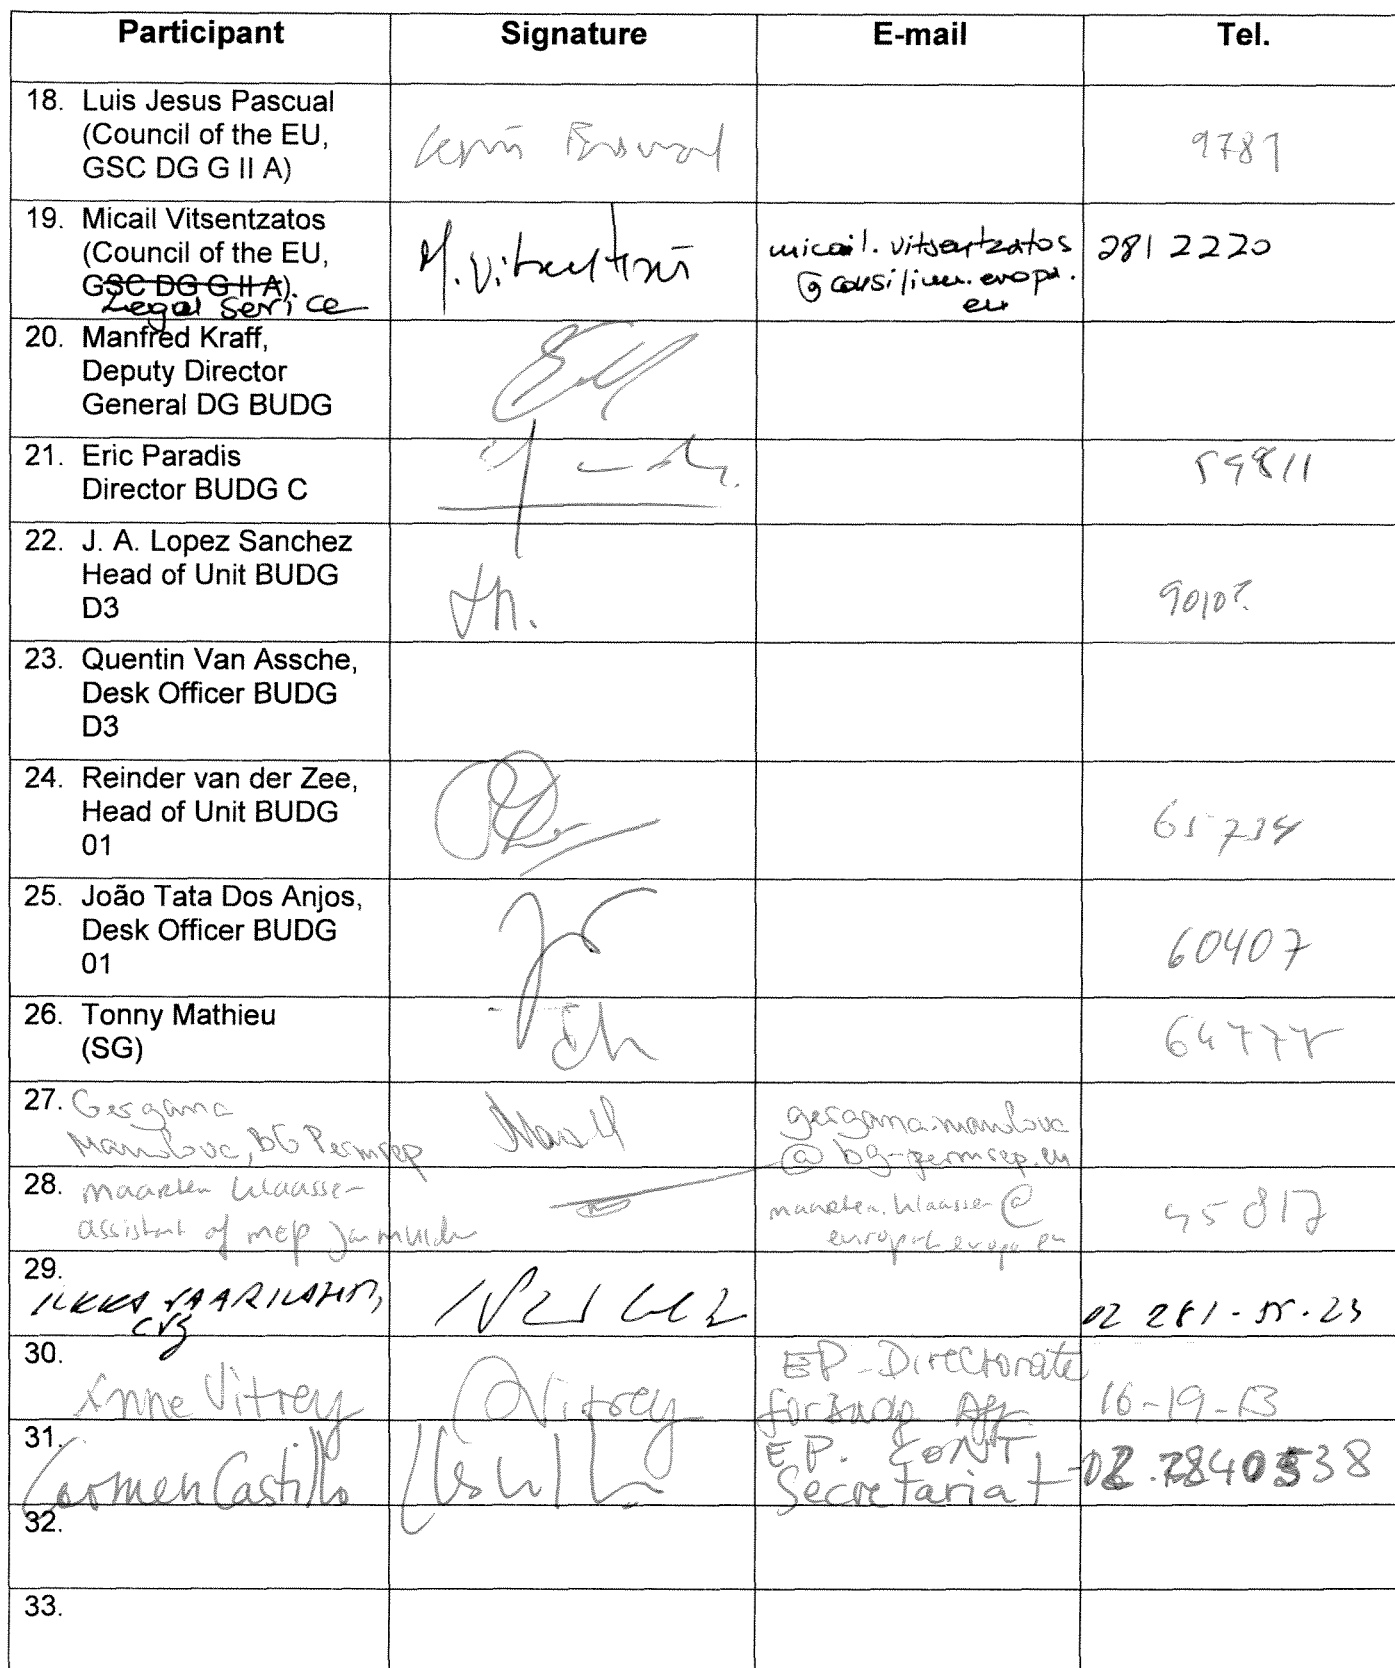 Participant Signature E-mail Tel.
18. Luis Jesus Pascual
(Council of the EU,
GSC DG G II A)
9781
19. Micail Vitsentzatos
(Council of the EU,
GSC DG G II A)
Legal Service
M. Vitsentzatos
micail.vitsentzatos
@consilium.europa.
eu
281 2220
20. Manfred Kraff,
Deputy Director
General DG BUDG
21. Eric Paradis
Director BUDG C
59811
22. J. A. Lopez Sanchez
Head of Unit BUDG
D3
23. Quentin Van Assche,
Desk Officer BUDG
D3
24. Reinder van der Zee,
Head of Unit BUDG
01
65734
25. João Tata Dos Anjos,
Desk Officer BUDG
01
60407
26. Tonny Mathieu
(SG)
27. Gergana
Manolova, BG Permrep
gergana.manolova
@bg-permrep.eu
28. Maarten Klaassen
assistant of MEP
maarten.klaassen@
europarl.europa.eu
45817
29.
30.
Anne Vitrey
Vitrey
EP-Directorate
for Budg Aff.
16-19-13
31.
Carmen Castillo
EP. CONT
Secretariat
02.2840538
32.
33.